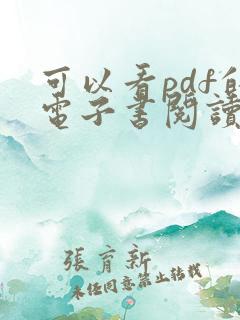 可以看pdf的
電子書閱讀
張育新
未經同意禁止轉載